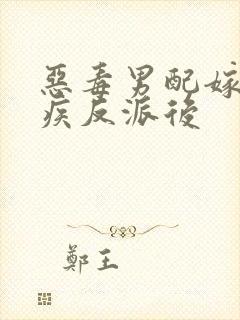 惡毒男配嫁
疾反派後
鄭王